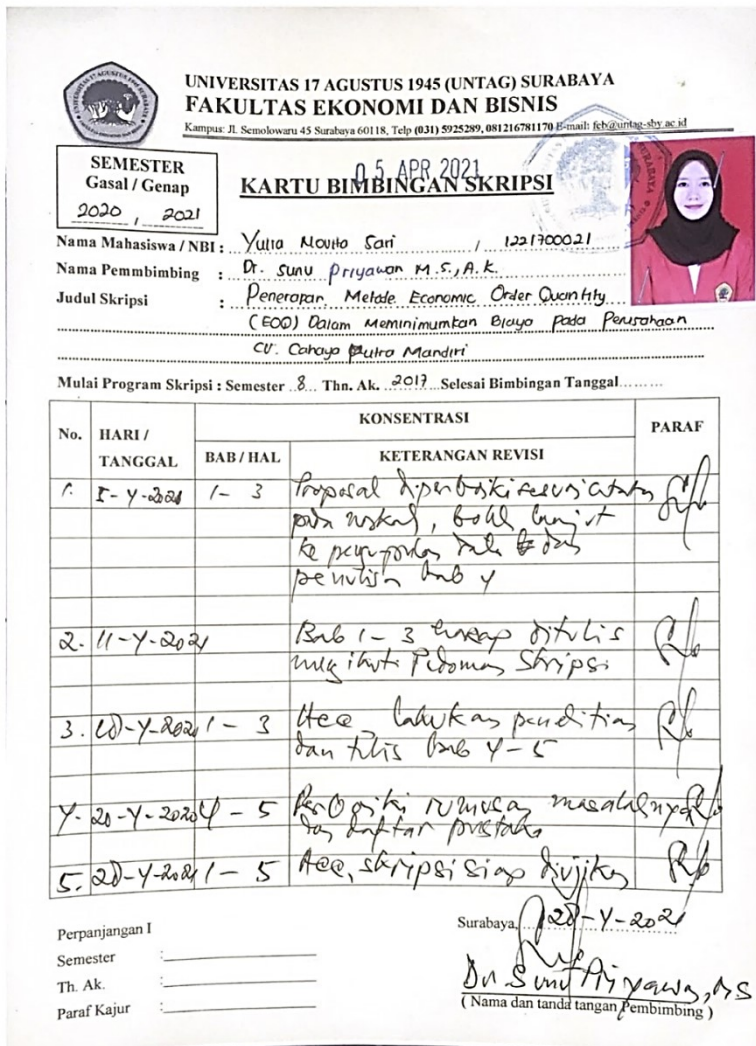 UNIVERSITAS 17 AGUSTUS 1945 (UNTAG) SURABAYA
FAKULTAS EKONOMI DAN BISNIS
Kampus: Jl. Semolowaru 45 Surabaya 60118, Telp (031) 5925289, 081216781170 E-mail: feb@untag-sby.ac.id
SEMESTER
Gasal / Genap
2020 / 2021
05 APR 2021
KARTU BIMBINGAN SKRIPSI
Nama Mahasiswa / NBI : Yulia Novita Sari / 1221700021
Nama Pemmbimbing : Dr. Sunu Priyawan M.S., A.K.
Judul Skripsi : Penerapan Metode Economic Order Quantity
(EOQ) Dalam Meminimumkan Biaya Pada Perusahaan
CV. Cahaya Putra Mandiri
Mulai Program Skripsi : Semester 8 Thn. Ak. 2017 Selesai Bimbingan Tanggal
No. HARI / TANGGAL KONSENTRASI PARAF
BAB / HAL KETERANGAN REVISI
1. 5-4-2021 1-3 Proposal diperbaiki sesuai catatan
pada naskah, boleh lanjut
ke pengumpulan data dan
penulisan bab 4
2. 11-4-2021 Bab 1-3 ditulis
mengikuti Pedoman Skripsi
3. 1-3 Acc, lakukan penelitian
dan tulis bab 4-5
4. 20-4-2020 4-5 Perbaiki rumusan masalahnya
dan daftar pustaka
5. 28-4-2021 1-5 Acc, skripsi siap diujikan
Perpanjangan I
Semester :
Th. Ak. :
Paraf Kajur :
Surabaya, 28-4-2021
Dr. Sunu Priyawan, MS
( Nama dan tanda tangan Pembimbing )